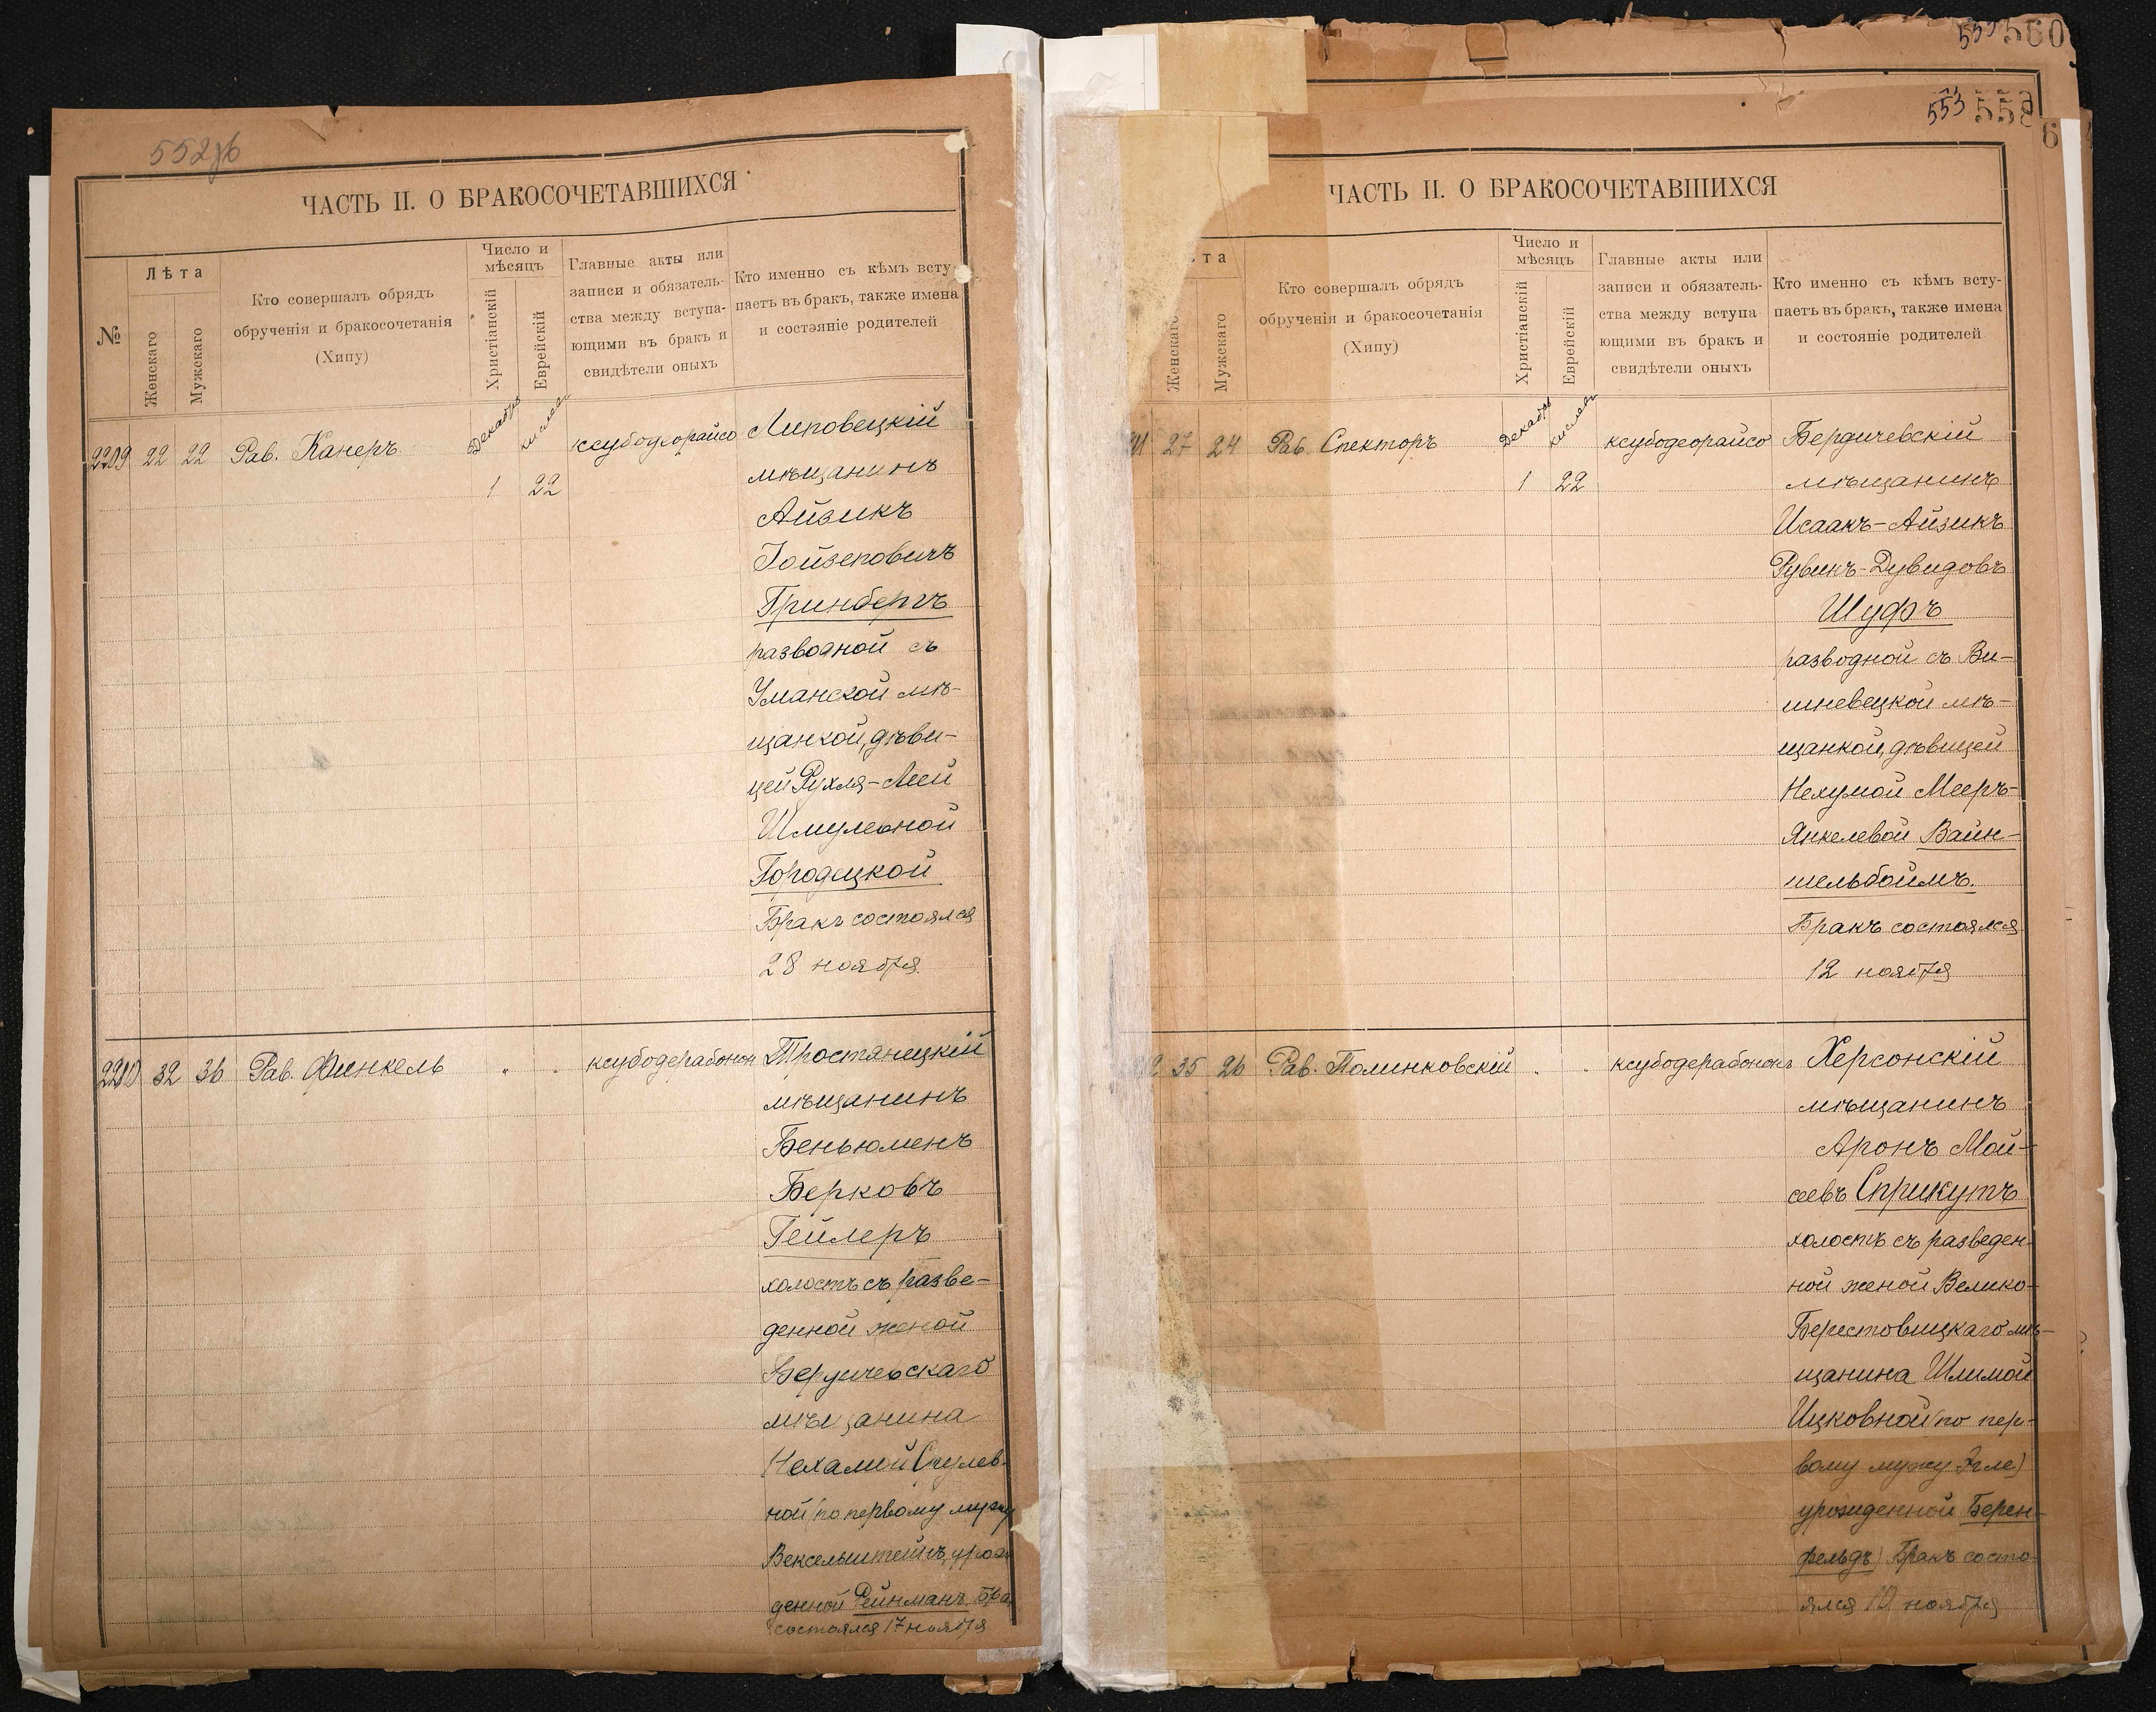 552об
ЧАСТЬ II. О БРАКОСОЧЕТАВШИХСЯ
№
Лѣта
Женскаго
Мужскаго
Кто совершалъ обрядъ
обрученія и бракосочетанія
(Хипу)
Число и
мѣсяцъ
Христіанскій
Еврейскій
Главные акты или
записи и обязатель-
ства между вступа-
ющими въ бракъ и
свидѣтели оныхъ
Кто именно съ кѣмъ всту-
паетъ въ бракъ, также имена
и состояніе родителей
Декабрь
кислевъ
2209 22 22 Рав. Канеръ 1 22 ксубодеорайсо Липовецкій
мѣщанинъ
Айзикъ
Іойзеповичъ
Гринбергъ
разводной съ
Уманской мѣ-
щанкой, дѣви-
цей Рухля-Леей
Шмулевной
Городецкой
Бракъ состоялся
28 ноября
2210 32 36 Рав. Финкель " " ксубодерабонон Тростянецкій
мѣщанинъ
Беньюменъ
Берковъ
Гейлеръ
холостъ съ разве-
денной женой
Бердичевскаго
мѣщанина
Нехамой Срулев-
ной (по первому мужу
Вексельштейнъ, урож
денной Рейнманъ. Бра
состоялся 17 ноября
553 560
553 558
6
ЧАСТЬ II. О БРАКОСОЧЕТАВШИХСЯ
та
Женскаго
Мужскаго
Кто совершалъ обрядъ
обрученія и бракосочетанія
(Хипу)
Число и
мѣсяцъ
Христіанскій
Еврейскій
Главные акты или
записи и обязатель-
ства между вступа
ющими въ бракъ и
свидѣтели оныхъ
Кто именно съ кѣмъ всту-
паетъ въ бракъ, также имена
и состояніе родителей
Декабрь
кислевъ
11 27 24 Рав. Спекторъ 1 22 ксубодеорайсо Бердичевскій
мѣщанинъ
Исаакъ-Айзикъ
Рувинъ-Дувидовъ
Шуфъ
разводной съ Ви-
шневецкой мѣ-
щанкой, дѣвицей
Нехумой Мееръ-
Янкелевой Вайн-
шельбоймъ.
Бракъ состоялся
12 ноября
2 35 26 Рав. Полинковскій " " ксубодерабононъ Херсонскій
мѣщанинъ
Аронъ Мой-
сеевъ Сприкутъ
холостъ съ разведен-
ной женой Велико-
Берестовицкаго мѣ-
щанина Шлимой
Ицковной (по пер-
вому мужу Эгле)
урожденной Берен-
фельдъ) Бракъ состо-
ялся 10 ноября